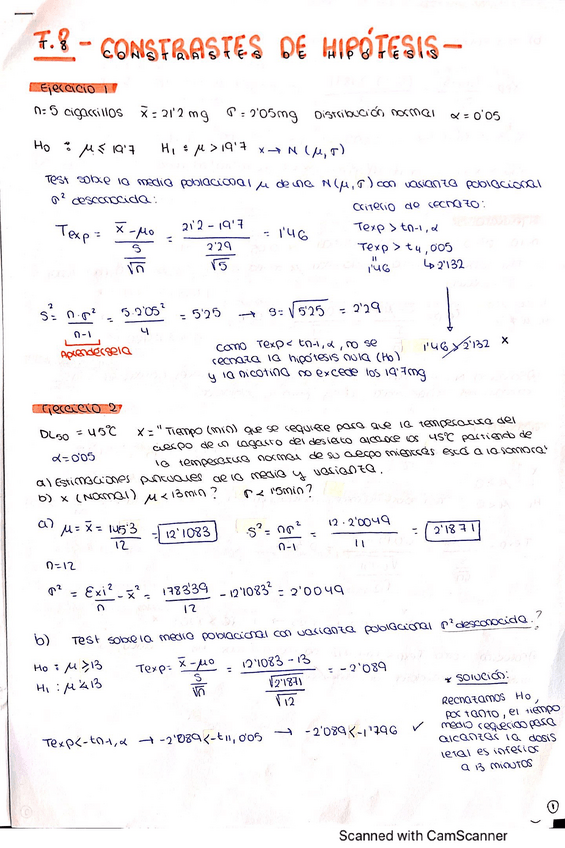 T.8 - CONSTRASTES DE HIPÓTESIS -
Ejercicio 1
n=5 cigarrillos x̄ = 21'2 mg σ = 2'05mg Distribución normal α = 0'05
H0 : μ ≤ 19'7 H1 : μ > 19'7 x → N (μ, σ)
Test sobre la media poblacional μ de una N(μ, σ) con varianza poblacional
σ² desconocida:
Criterio de rechazo:
Texp = (x̄ - μ0) / (S / √n) = (21'2 - 19'7) / (2'29 / √5) = 1'46
Texp > tn-1, α
Texp > t4, 005
1'46 ↳ 2'132
S² = n·σ² / n-1 = 5·2'05² / 4 = 5'25 → S = √5'25 = 2'29
Aprendersela
como Texp < tn-1, α, no se
rechaza la hipótesis nula (H0)
y la nicotina no excede los 19'7mg
1'46 > 2'132 x
Ejercicio 2
DL50 = 45ºC X = "Tiempo (min) que se requiere para que la temperatura del
cuerpo de un lagarto del desierto alcance los 45ºC partiendo de
α = 0'05 la temperatura normal de su cuerpo mientras está a la sombra"
a) Estimaciones puntuales de la media y varianza.
b) x (Normal) μ < 13min? σ < 15min?
a) μ = x̄ = 145'3 / 12 = 12'1083 S² = nσ² / n-1 = 12·2'0049 / 11 = 2'1871
n=12
σ² = Σxi² / n - x̄² = 1783'39 / 12 - 12'1083² = 2'0049
b) Test sobre la media poblacional con varianza poblacional σ² desconocida.?
H0 : μ ≥ 13
H1 : μ < 13
Texp = (x̄ - μ0) / (S / √n) = (12'1083 - 13) / (√2'1871 / √12) = -2'089
* SOLUCIÓN:
Rechazamos H0,
por tanto, el tiempo
medio requerido para
alcanzar la dosis
letal es inferior
a 13 minutos
Texp < -tn-1, α → -2'089 < -t11, 0'05 → -2'089 < -1'796 ✓
1
Scanned with CamScanner